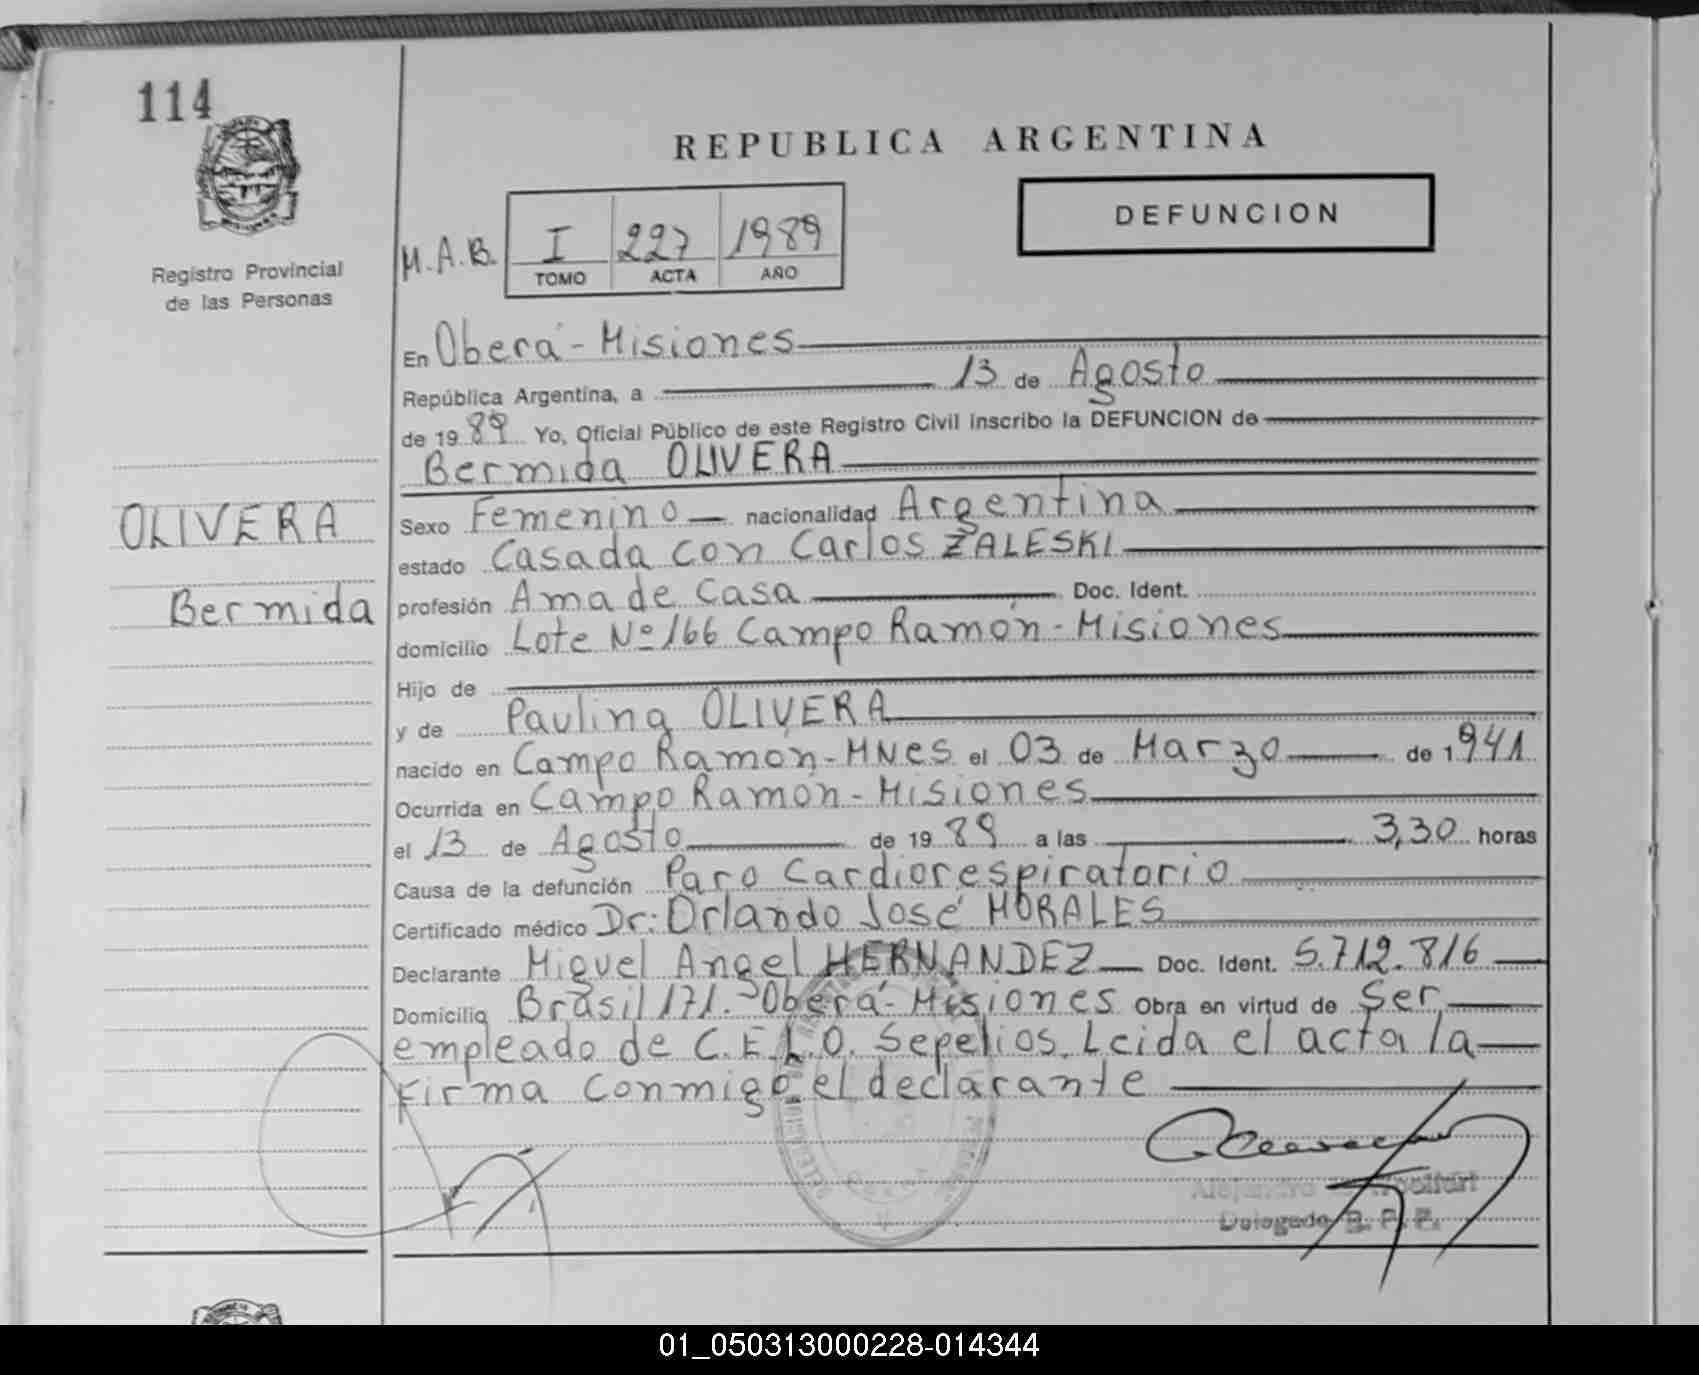 114
REPUBLICA ARGENTINA
DEFUNCION
M.A.B. I 227 1989
TOMO ACTA AÑO
Registro Provincial
de las Personas
En Oberá - Misiones
República Argentina, a 13 de Agosto
de 1989 Yo, Oficial Público de este Registro Civil inscribo la DEFUNCION de
Bermida OLIVERA
OLIVERA
Bermida
Sexo Femenino nacionalidad Argentina
estado Casada con Carlos ZALESKI
profesión Ama de Casa Doc. Ident.
domicilio Lote Nº 166 Campo Ramón - Misiones
Hijo de
y de Paulina OLIVERA
nacido en Campo Ramón - MNes el 03 de Marzo de 1941
Ocurrida en Campo Ramón - Misiones
el 13 de Agosto de 1989 a las 3,30 horas
Causa de la defunción Paro Cardiorespiratorio
Certificado médico Dr: Orlando José MORALES
Declarante Miguel Angel HERNANDEZ Doc. Ident. 5.712.816
Domicilio Brasil 171.- Oberá - Misiones Obra en virtud de Ser
empleado de C.E.L.O. Sepelios. Leida el acta la
Firma Conmigo el declarante
Alejandro
Delegado R. P. P.
01_050313000228-014344